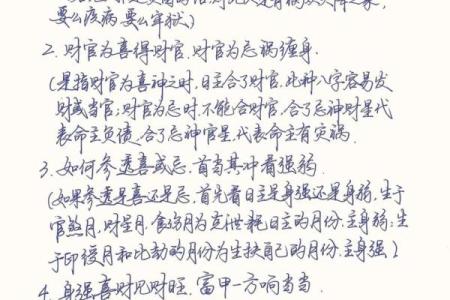 要么疾病要么牢狱)
2. 财官为喜得财官.财官为忌祸缠身.
(是指财官为喜神之时,日主合了财官,此种八字容易发
财或当官;财官为忌时,不能合财官,合了忌神财星代
表命主负债,合了忌神官星,代表命主有灾祸.
3. 如何参透喜或忌,首当其冲看强弱
(如果参透是喜还是忌,首先看日主是身强还是身弱,生于
官煞月,财星月,食伤月为克泄耗日主的月份,主身弱;生
于印绶月和比劫的月份为生扶自己的月份,主身强)
4. 身强喜财见财旺,富甲一方响当当.